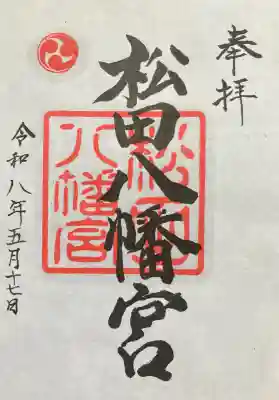 奉拝
松田八幡宮
松田八幡宮
令和八年五月十七日